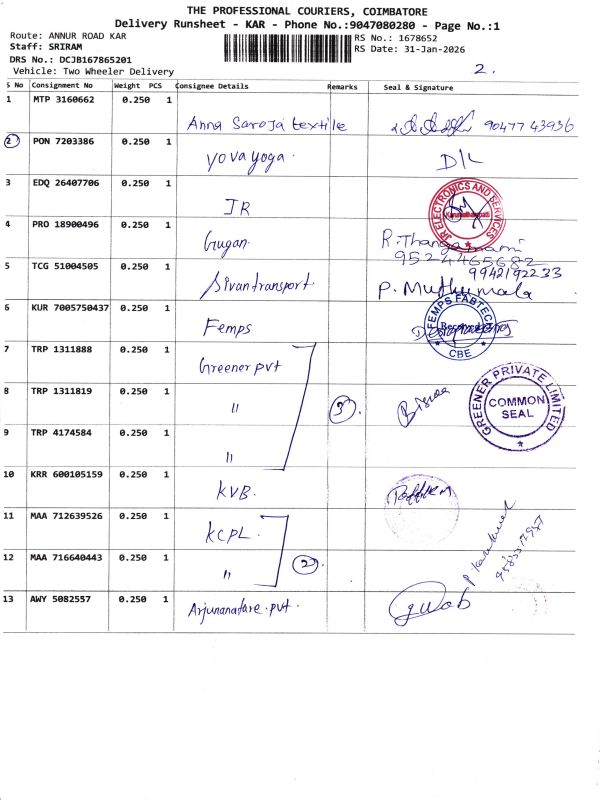 THE PROFESSIONAL COURIERS, COIMBATORE
Delivery Runsheet - KAR - Phone No.:9047080280 - Page No.:1
Route: ANNUR ROAD KAR
RS No.: 1678652
Staff: SRIRAM
RS Date: 31-Jan-2026
DRS No.: DCJB167865201
Vehicle: Two Wheeler Delivery
2.
S No Consignment No Weight PCS Consignee Details Remarks Seal & Signature
1 MTP 3160662 0.250 1
Anna Saroja textile 90477 43936
2 PON 7203386 0.250 1
yova yoga. D/L
3 EDQ 26407706 0.250 1
JR
JR ELECTRONICS AND SERVICES
4 PRO 18900496 0.250 1
Gugan. R. Thangamami
9524465682
5 TCG 51004505 0.250 1
9942192233
Sivantransport P. Muthumala
6 KUR 7005750437 0.250 1
Femps
FEMPS FABTECH
CBE
7 TRP 1311888 0.250 1
Greener pvt
8 TRP 1311819 0.250 1
" 3.
GREENER PRIVATE LIMITED
COMMON
SEAL
9 TRP 4174584 0.250 1
"
10 KRR 600105159 0.250 1
KVB.
11 MAA 712639526 0.250 1
KCPL.
12 MAA 716640443 0.250 1
" 2.
13 AWY 5082557 0.250 1